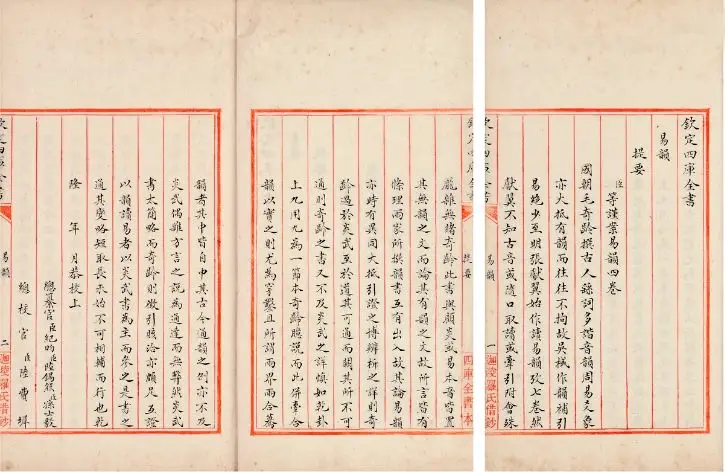 欽定四庫全書
易韻
提要
臣等謹案易韻四卷
國朝毛奇齡撰古人繇詞多諧音韻周易爻象
亦大抵有韻而往往不拘故吳棫作韻補引
易絶少至明張獻翼始作讀易韻攷七卷然
獻翼不知古音或隨口取讀或牽引附會殊
易韻
一
迦陵羅氏借鈔
龐雜無緒奇齡此書與顧炎武易本音皆置
其無韻之文而論其有韻之文故所言皆有
條理兩家所撰韻書互有出入故其論易韻
亦時有異同大抵引證之博辨析之詳則奇
齡過於炎武至於通其可通而闕其所不可
通則奇齡之書又不及炎武之詳慎如乾卦
上九用九為一節本奇齡臆說而此併牽合
韻以實之則尤為穿鑿且所謂兩界兩合驀
欽定四庫全書
提要
四庫全書本
韻者其中皆自申其古今通韻之例亦不及
炎武偶雜方言之說為通達而無弊然炎武
書太簡略而奇齡則徵引賅洽亦頗足互證
以韻讀易者以炎武書為主而參之是書以
通其變略短取長未始不可相輔而行也乾
隆 年 月恭校上
總纂官臣紀昀臣陸錫熊臣孫士毅
總校官臣陸費墀
欽定四庫全書
易韻
二
迦陵羅氏借鈔